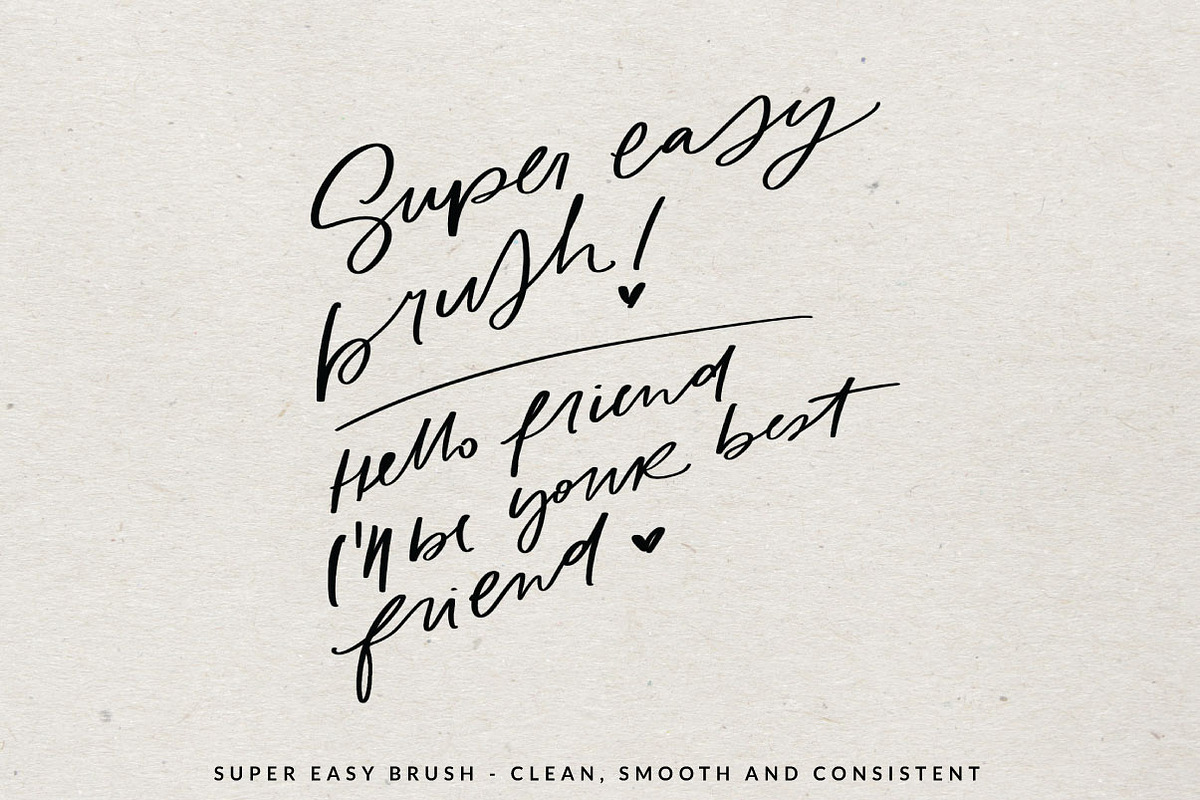 Super easy
brush!
Hello friend
I'll be your best
friend
SUPER EASY BRUSH - CLEAN, SMOOTH AND CONSISTENT